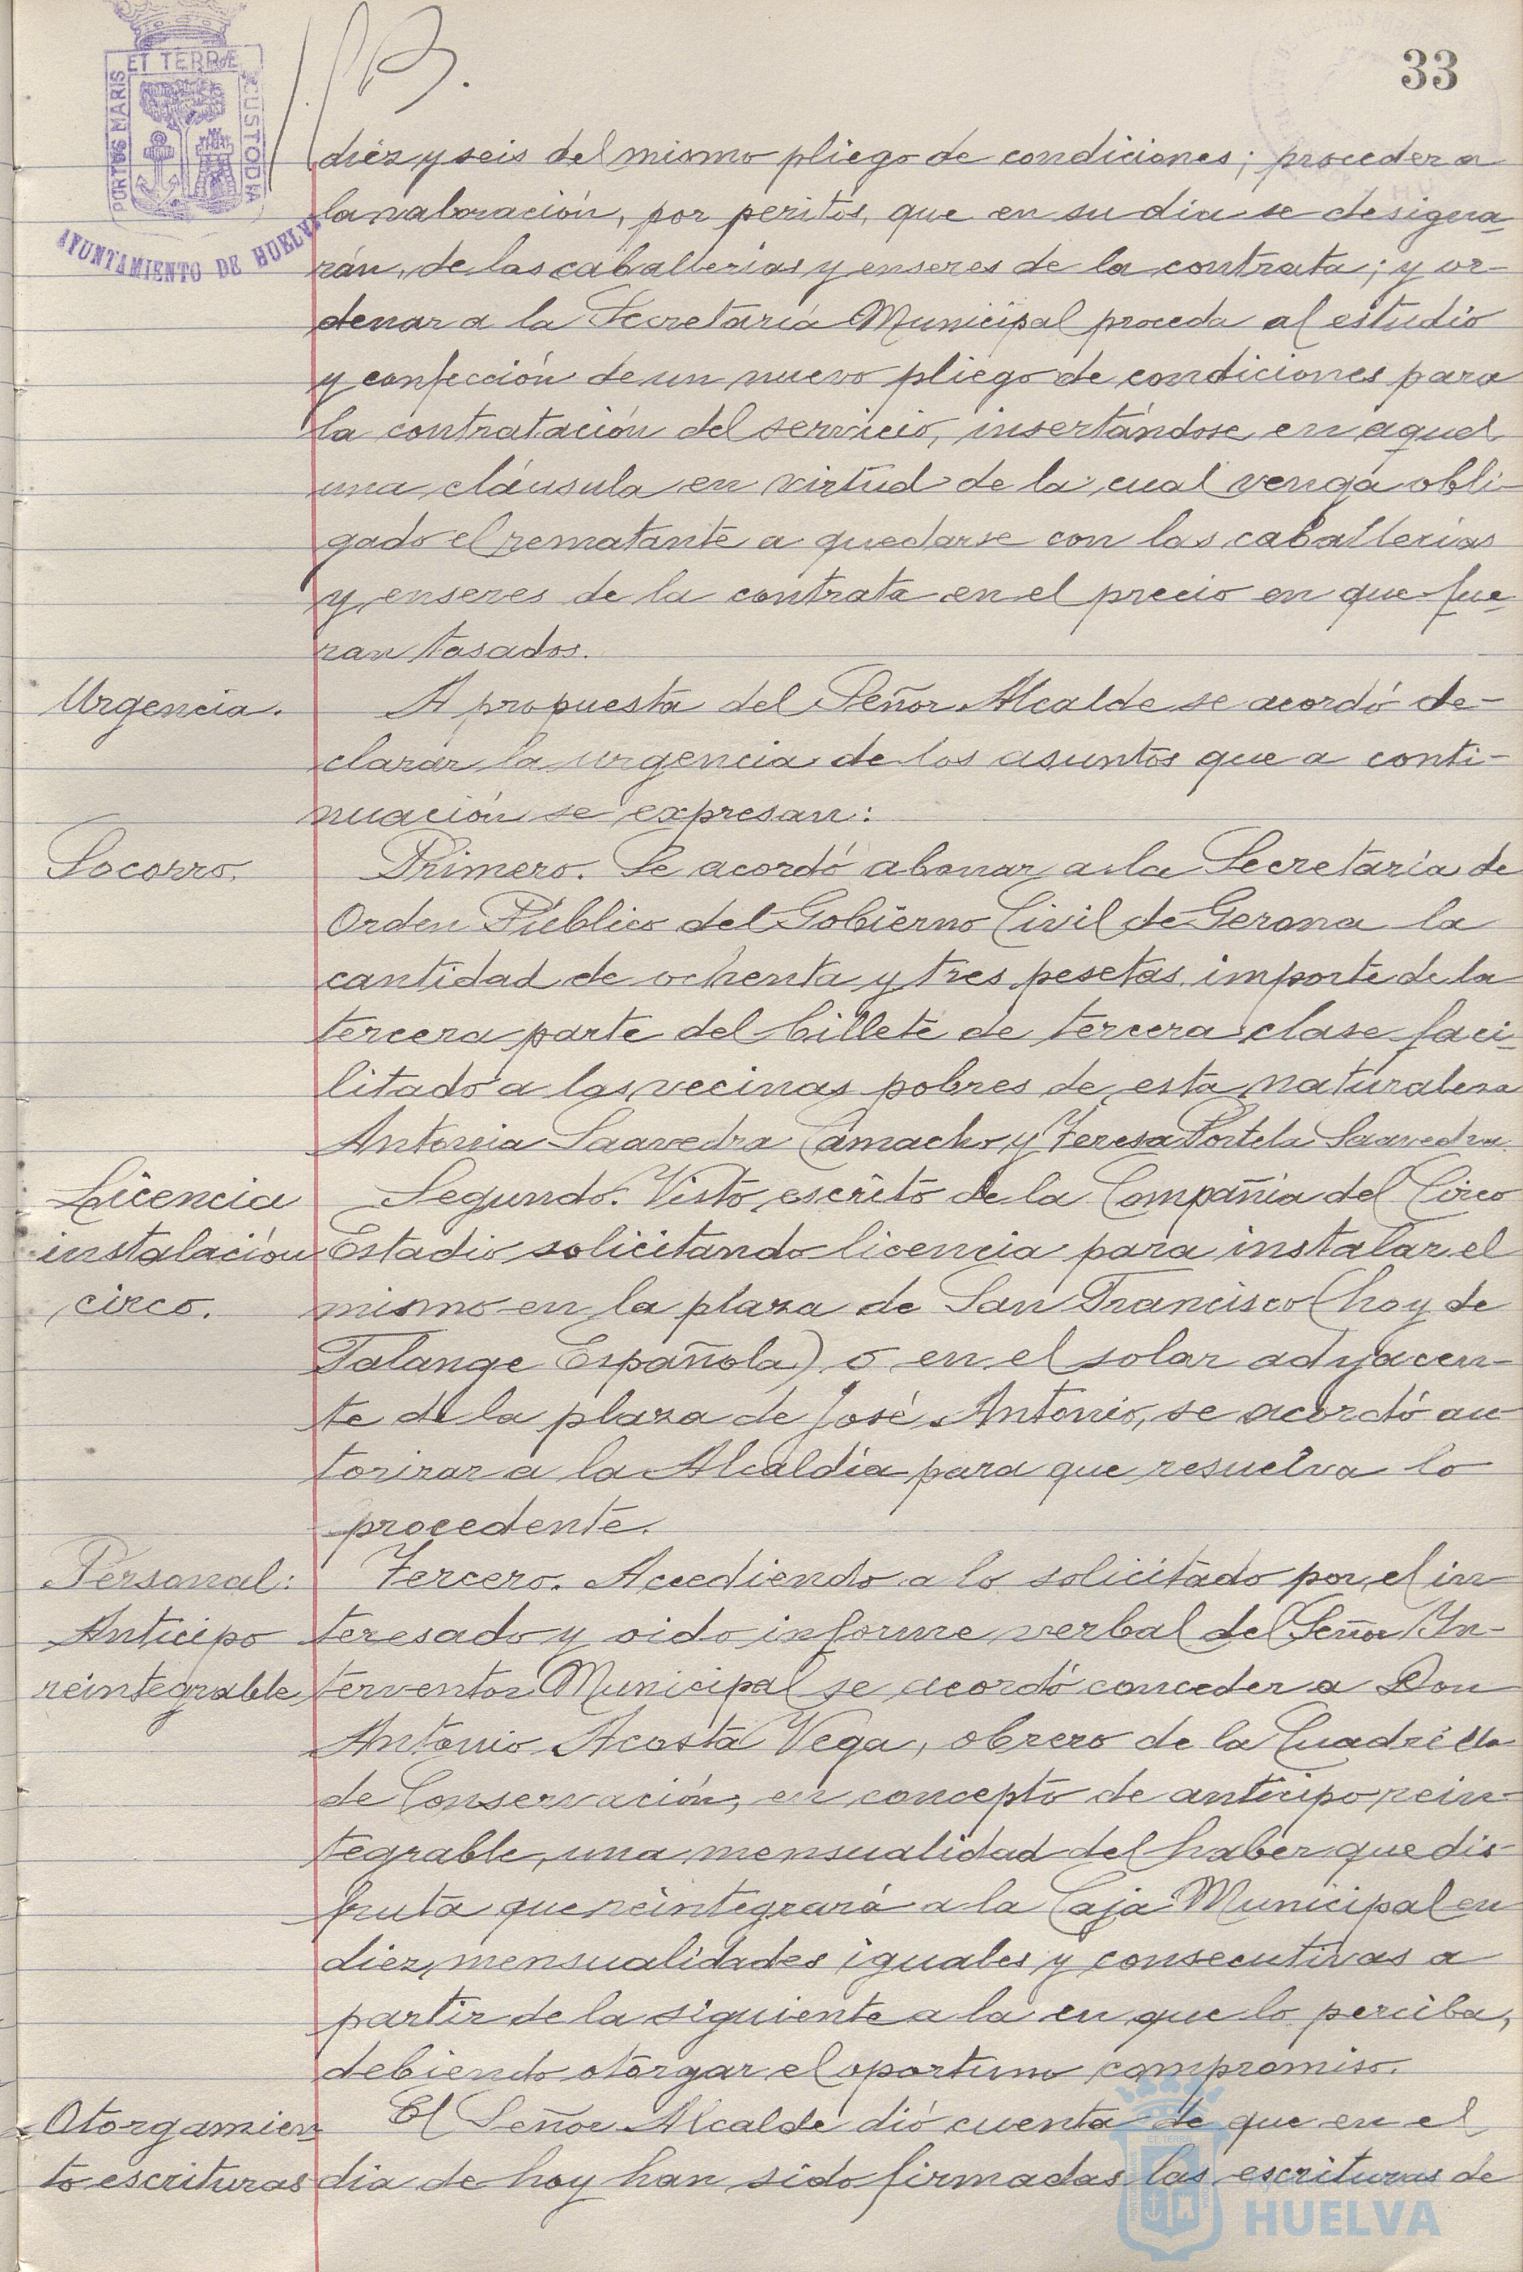 33
PORTUS MARIS ET TERRÆ CUSTODIA
AYUNTAMIENTO DE HUELVA
diez y seis del mismo pliego de condiciones; proceder a
la valoración, por peritos, que en su día se designa-
rán, de las caballerías y enseres de la contrata; y or-
denar a la Secretaría Municipal proceda al estudio
y confección de un nuevo pliego de condiciones para
la contratación del servicio, insertándose en aquel
una cláusula en virtud de la cual venga obli-
gado el rematante a quedarse con las caballerías
y enseres de la contrata en el precio en que fue-
ran tasados.
Urgencia. A propuesta del Señor Alcalde se acordó de-
clarar la urgencia de los asuntos que a conti-
nuación se expresan:
Socorro. Primero. Se acordó abonar a la Secretaría de
Orden Público del Gobierno Civil de Gerona la
cantidad de ochenta y tres pesetas importe de la
tercera parte del billete de tercera clase faci-
litado a las vecinas pobres de esta naturaleza
Antonia Saavedra Camacho y Teresa Portela Saavedra.
Licencia Segundo. Visto escrito de la Compañía del Circo
instalación Estadio solicitando licencia para instalar el
circo. mismo en la plaza de San Francisco (hoy de
Falange Española) o en el solar adyacen-
te de la plaza de José Antonio, se acordó au
torizar a la Alcaldía para que resuelva lo
procedente.
Personal: Tercero. Accediendo a lo solicitado por el in-
Anticipo teresado y oido informe verbal del Señor In-
reintegrable terventor Municipal se acordó conceder a Don
Antonio Acosta Vega, obrero de la Cuadrilla
de Conservación, en concepto de anticipo rein-
tegrable, una mensualidad del haber que dis-
fruta que reintegrará a la Caja Municipal en
diez mensualidades iguales y consecutivas a
partir de la siguiente a la en que lo perciba,
debiendo otorgar el oportuno compromiso.
Otorgamien- El Señor Alcalde dió cuenta de que en el
to escrituras dia de hoy han sido firmadas las escrituras de
HUELVA